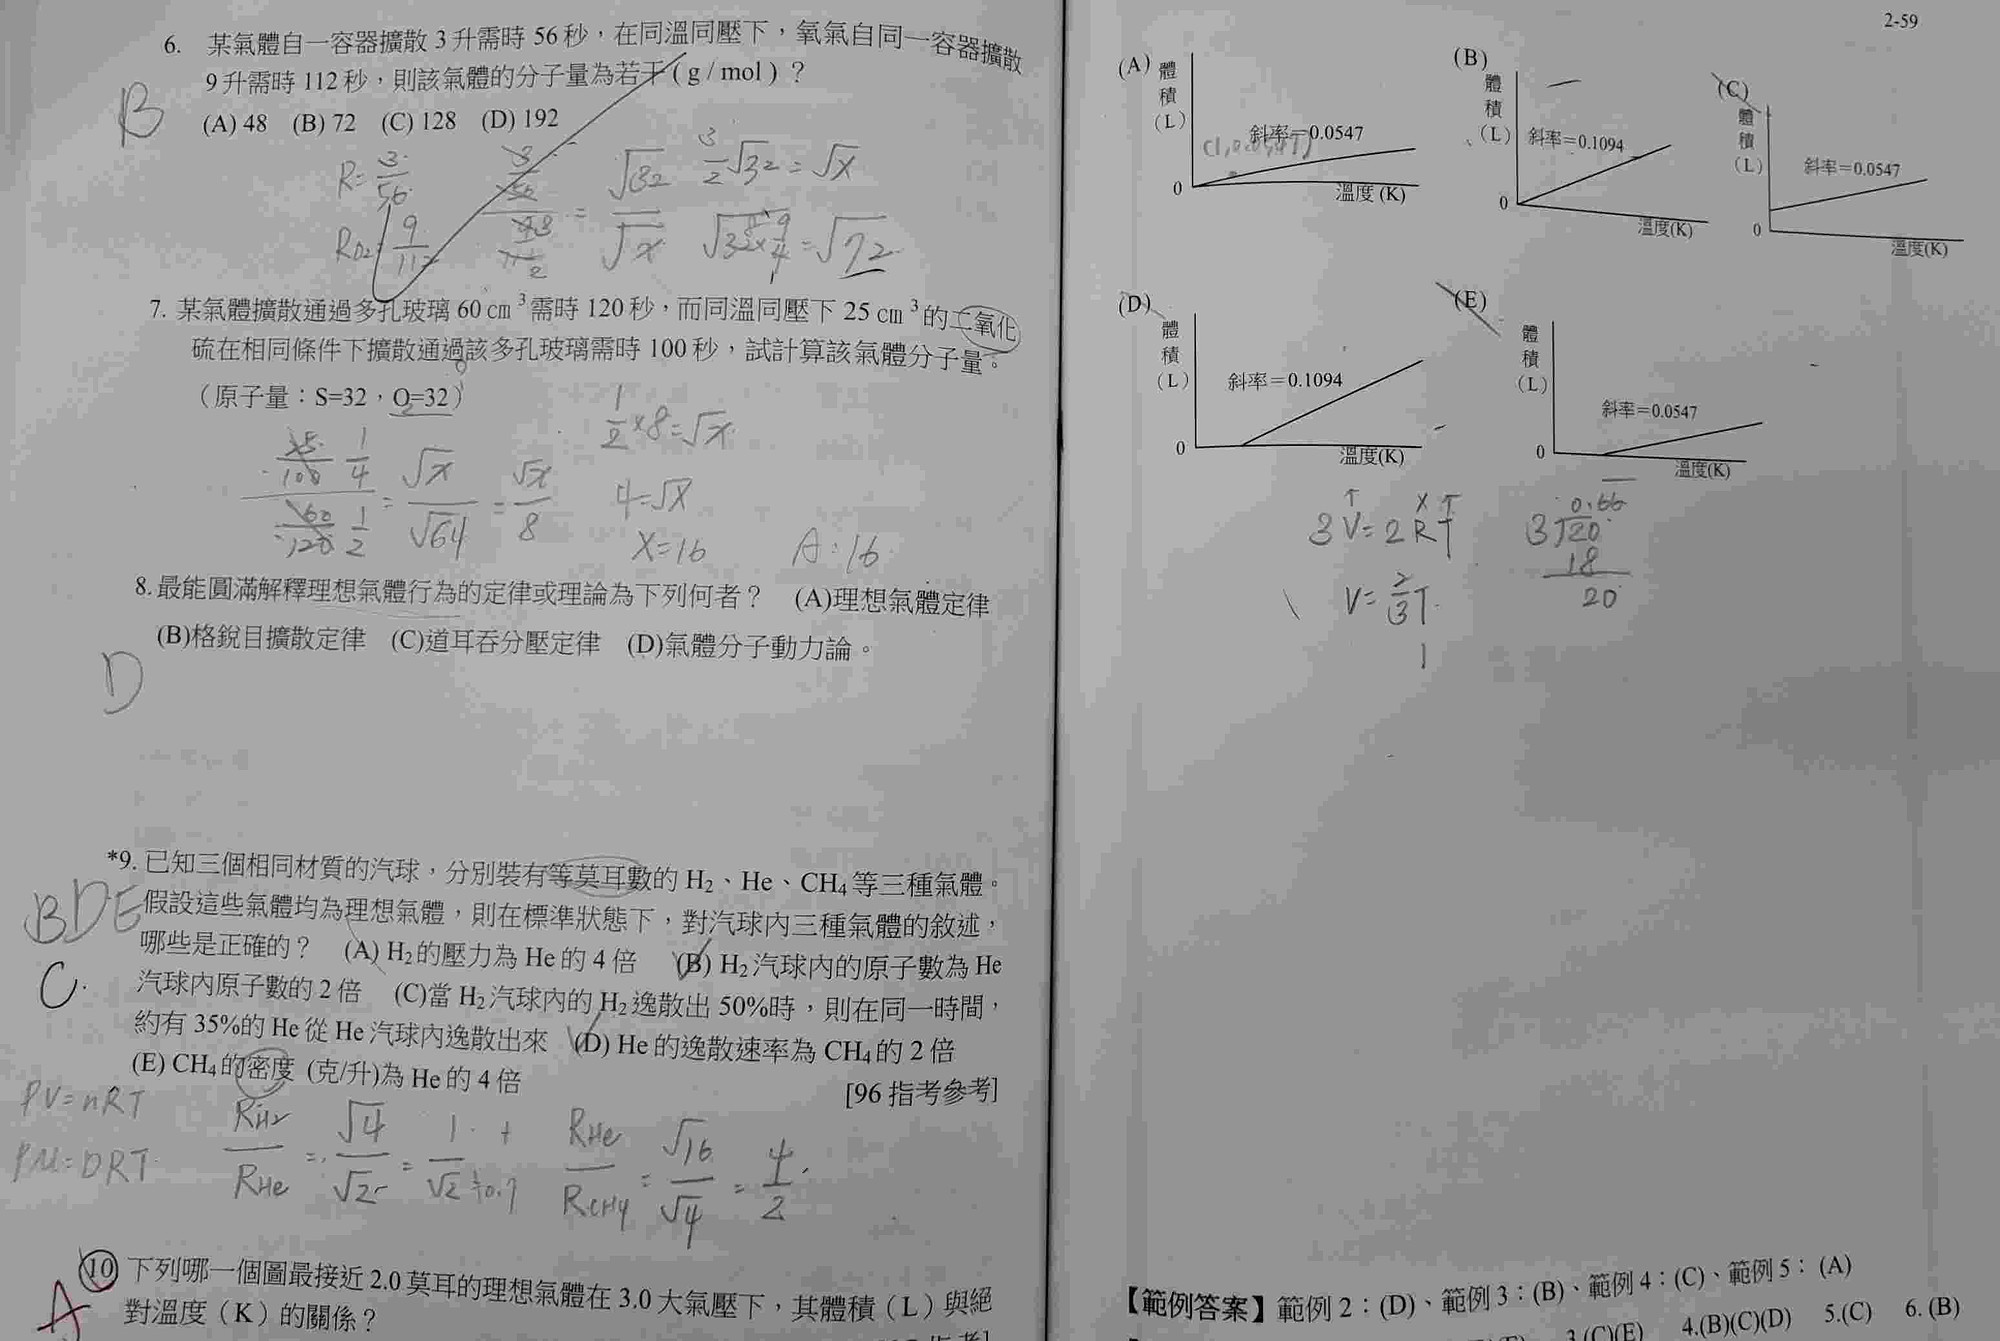 6. 某氣體自一容器擴散 3 升需時 56 秒，在同溫同壓下，氧氣自同一容器擴散
9 升需時 112 秒，則該氣體的分子量為若干 ( g / mol ) ？
(A) 48 (B) 72 (C) 128 (D) 192
B
R= 3/56
R_O2= 9/112
√32/√x
3/2 √32 = √x
√(32×9/4) = √72
7. 某氣體擴散通過多孔玻璃 60 cm³ 需時 120 秒，而同溫同壓下 25 cm³ 的二氧化
硫在相同條件下擴散通過該多孔玻璃需時 100 秒，試計算該氣體分子量。
（原子量：S=32，O=32）
25/100 1/4
60/120 1/2
= √x/√64 = √x/8
1/2 ×8=√x
4=√x
x=16 A:16
8. 最能圓滿解釋理想氣體行為的定律或理論為下列何者？ (A)理想氣體定律
(B)格銳目擴散定律 (C)道耳吞分壓定律 (D)氣體分子動力論。
D
*9. 已知三個相同材質的汽球，分別裝有等莫耳數的 H₂、He、CH₄ 等三種氣體。
假設這些氣體均為理想氣體，則在標準狀態下，對汽球內三種氣體的敘述，
哪些是正確的？ (A) H₂ 的壓力為 He 的 4 倍 (B) H₂ 汽球內的原子數為 He
汽球內原子數的 2 倍 (C)當 H₂ 汽球內的 H₂ 逸散出 50%時，則在同一時間，
約有 35%的 He 從 He 汽球內逸散出來 (D) He 的逸散速率為 CH₄ 的 2 倍
(E) CH₄ 的密度 (克/升)為 He 的 4 倍
[96 指考參考]
BDE
C.
PV=nRT
PM=DRT
R_H2/R_He = √4/√2 = 1/√2
R_He/R_CH4 = √16/√4 = 4/2
10 下列哪一個圖最接近 2.0 莫耳的理想氣體在 3.0 大氣壓下，其體積（L）與絕
對溫度（K）的關係？
A
2-59
(A) 體積(L) 斜率=0.0547 0 溫度 (K)
(B) 體積(L) 斜率=0.1094 0 溫度(K)
(C) 體積(L) 斜率=0.0547 0 溫度(K)
(D) 體積(L) 斜率=0.1094 0 溫度(K)
(E) 體積(L) 斜率=0.0547 0 溫度(K)
3V=2RT
V=2/3T
0.66
3 20
18
20
【範例答案】範例 2：(D)、範例 3：(B)、範例 4：(C)、範例 5： (A)
3.(C)(E) 4.(B)(C)(D) 5.(C) 6. (B)